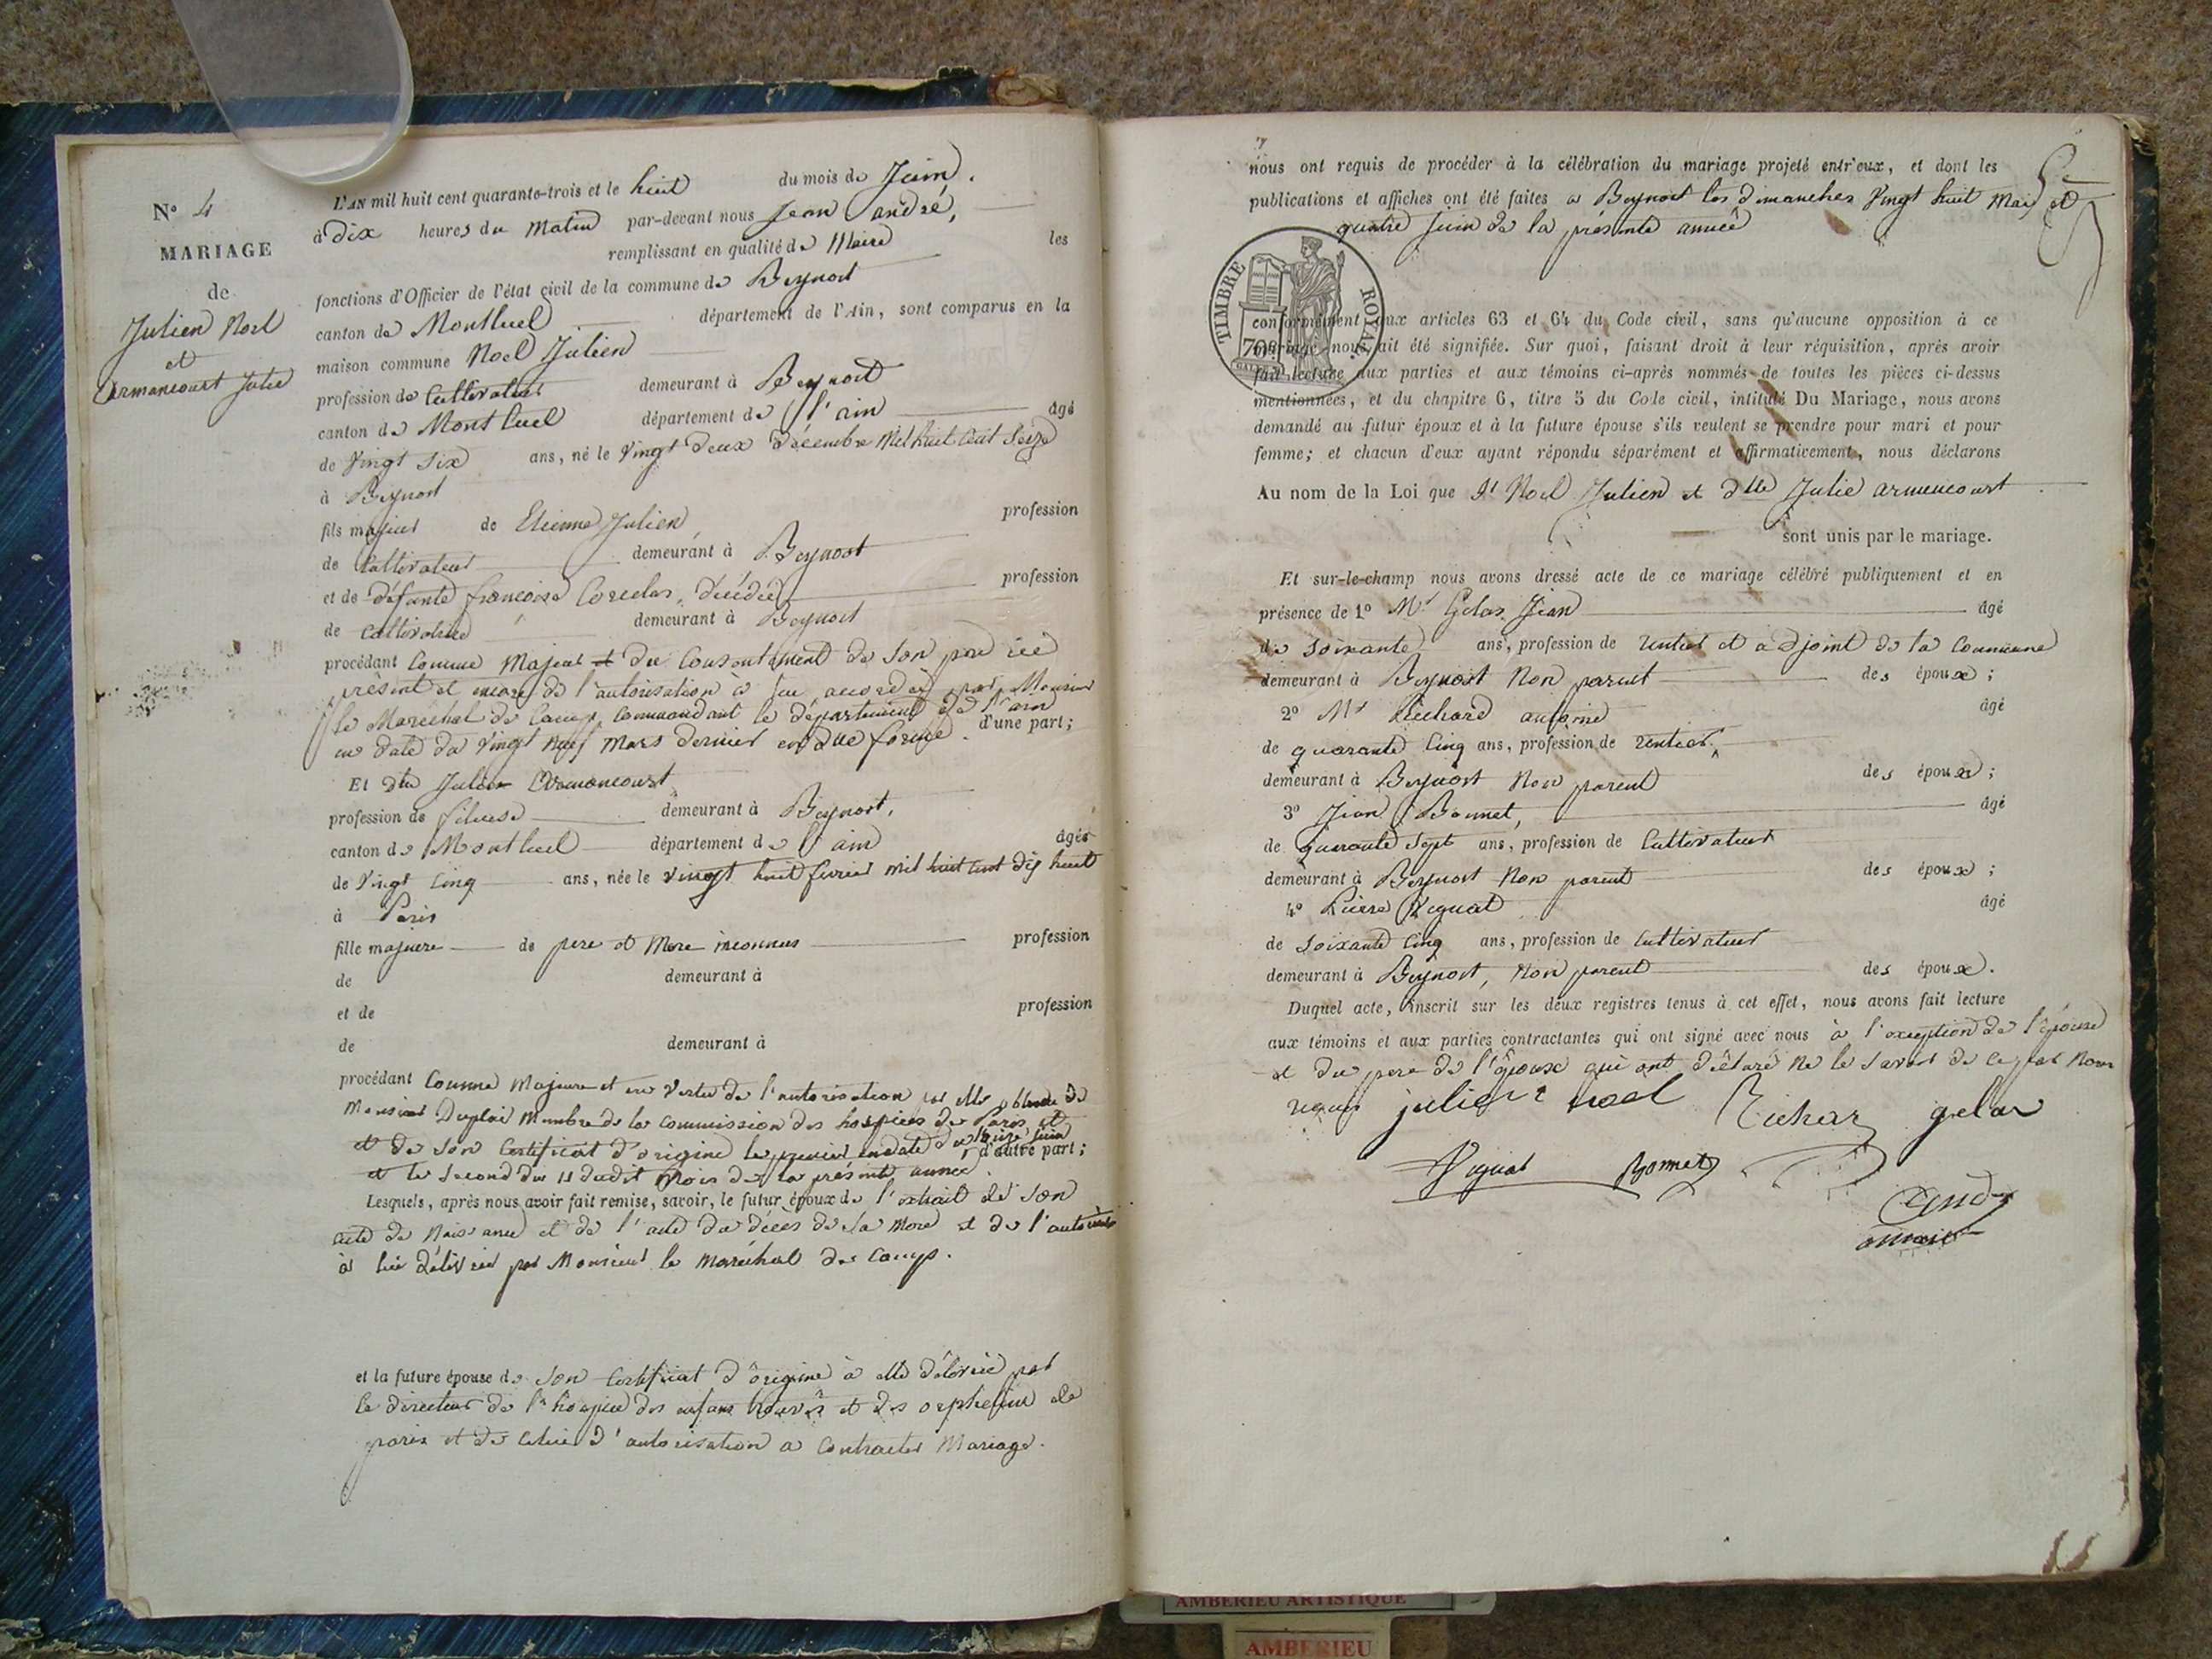 N° 4
MARIAGE
de
Julien Noel
et
Armancourt Julie
L'AN mil huit cent quarante-trois et le huit du mois de Juin.
à dix heures du Matin par-devant nous Jean André,
remplissant en qualité de Maire les
fonctions d'Officier de l'état civil de la commune de Beynost
canton de Montluel département de l'Ain, sont comparus en la
maison commune Noel Julien
profession de Cultivateur demeurant à Beynost
canton de Montluel département de l'ain âgé
de Vingt Six ans, né le Vingt deux décembre Mil huit Cent Seize
à Beynost
fils majeur de Etienne Julien profession
de Cultivateur demeurant à Beynost
et de défunte françoise décédée profession
de Cultivatrice demeurant à Beynost
procédant Comme Majeur et du Consentement de Son père ici
présent et encore de l'autorisation à lui accordée par Monsieur
le Maréchal de Camp Commandant le département de l'ain
en date du Vingt Neuf Mars dernier en due forme. d'une part;
Et Dlle Julie Armancourt
profession de fileuse demeurant à Beynost,
canton de Montluel département de l'ain âgée
de Vingt Cinq ans, née le Vingt huit fevrier mil huit cent dix huit
à Paris
fille majeure de pere et Mere inconnus profession
de demeurant à
et de profession
de demeurant à
procédant Comme Majeure et en Vertu de l'autorisation par elle obtenue de
Monsieur Duplai Membre de la Commission des hospices de Paris et
et de Son Certificat d'origine le premier en date du d'autre part;
et le Second du 11 dudit Mois de la présente année.
Lesquels, après nous avoir fait remise, savoir, le futur époux de l'extrait de Son
acte de Naissance et de l'acte de décès de Sa Mere et de l'autorisation
à lui délivrée par Monsieur le Maréchal de Camp.
et la future épouse de Son Certificat d'origine à elle délivrée par
le directeur de l'hospice des enfans trouvés et des orphelins de
paris et de Celui d'autorisation a Contracter Mariage.
nous ont requis de procéder à la célébration du mariage projeté entr'eux, et dont les
publications et affiches ont été faites à Beynost les dimanches Vingt huit Mai et
quatre Juin de la présente année
TIMBRE ROYAL
conformément aux articles 63 et 64 du Code civil, sans qu'aucune opposition à ce
mariage nous ait été signifiée. Sur quoi, faisant droit à leur réquisition, après avoir
fait lecture aux parties et aux témoins ci-après nommés de toutes les pièces ci-dessus
mentionnées, et du chapitre 6, titre 5 du Code civil, intitulé Du Mariage, nous avons
demandé au futur époux et à la future épouse s'ils veulent se prendre pour mari et pour
femme; et chacun d'eux ayant répondu séparément et affirmativement, nous déclarons
Au nom de la Loi que Sr Noel Julien et dlle Julie armencourt
sont unis par le mariage.
Et sur-le-champ nous avons dressé acte de ce mariage célébré publiquement et en
présence de 1° Mr Gelas Jean âgé
de Soixante ans, profession de rentier et adjoint de la Commune
demeurant à Beynost Non parent des époux;
2° Mr Richard antoine âgé
de quarante Cinq ans, profession de rentier,
demeurant à Beynost Non parent des époux;
3° Jean Bonnet, âgé
de quarante Sept ans, profession de Cultivateur
demeurant à Beynost Non parent des époux;
4° Pierre Vignat âgé
de Soixante Cinq ans, profession de Cultivateur
demeurant à Beynost, Non parent des époux.
Duquel acte, inscrit sur les deux registres tenus à cet effet, nous avons fait lecture
aux témoins et aux parties contractantes qui ont signé avec nous à l'exception de l'épouse
et du pere de l'époux qui ont déclaré Ne le Savoir de ce par Nous
requis julient noel Richar gelas
Vignat Bonnet
André
maire
AMBERIEU ARTISTIQUE
AMBERIEU